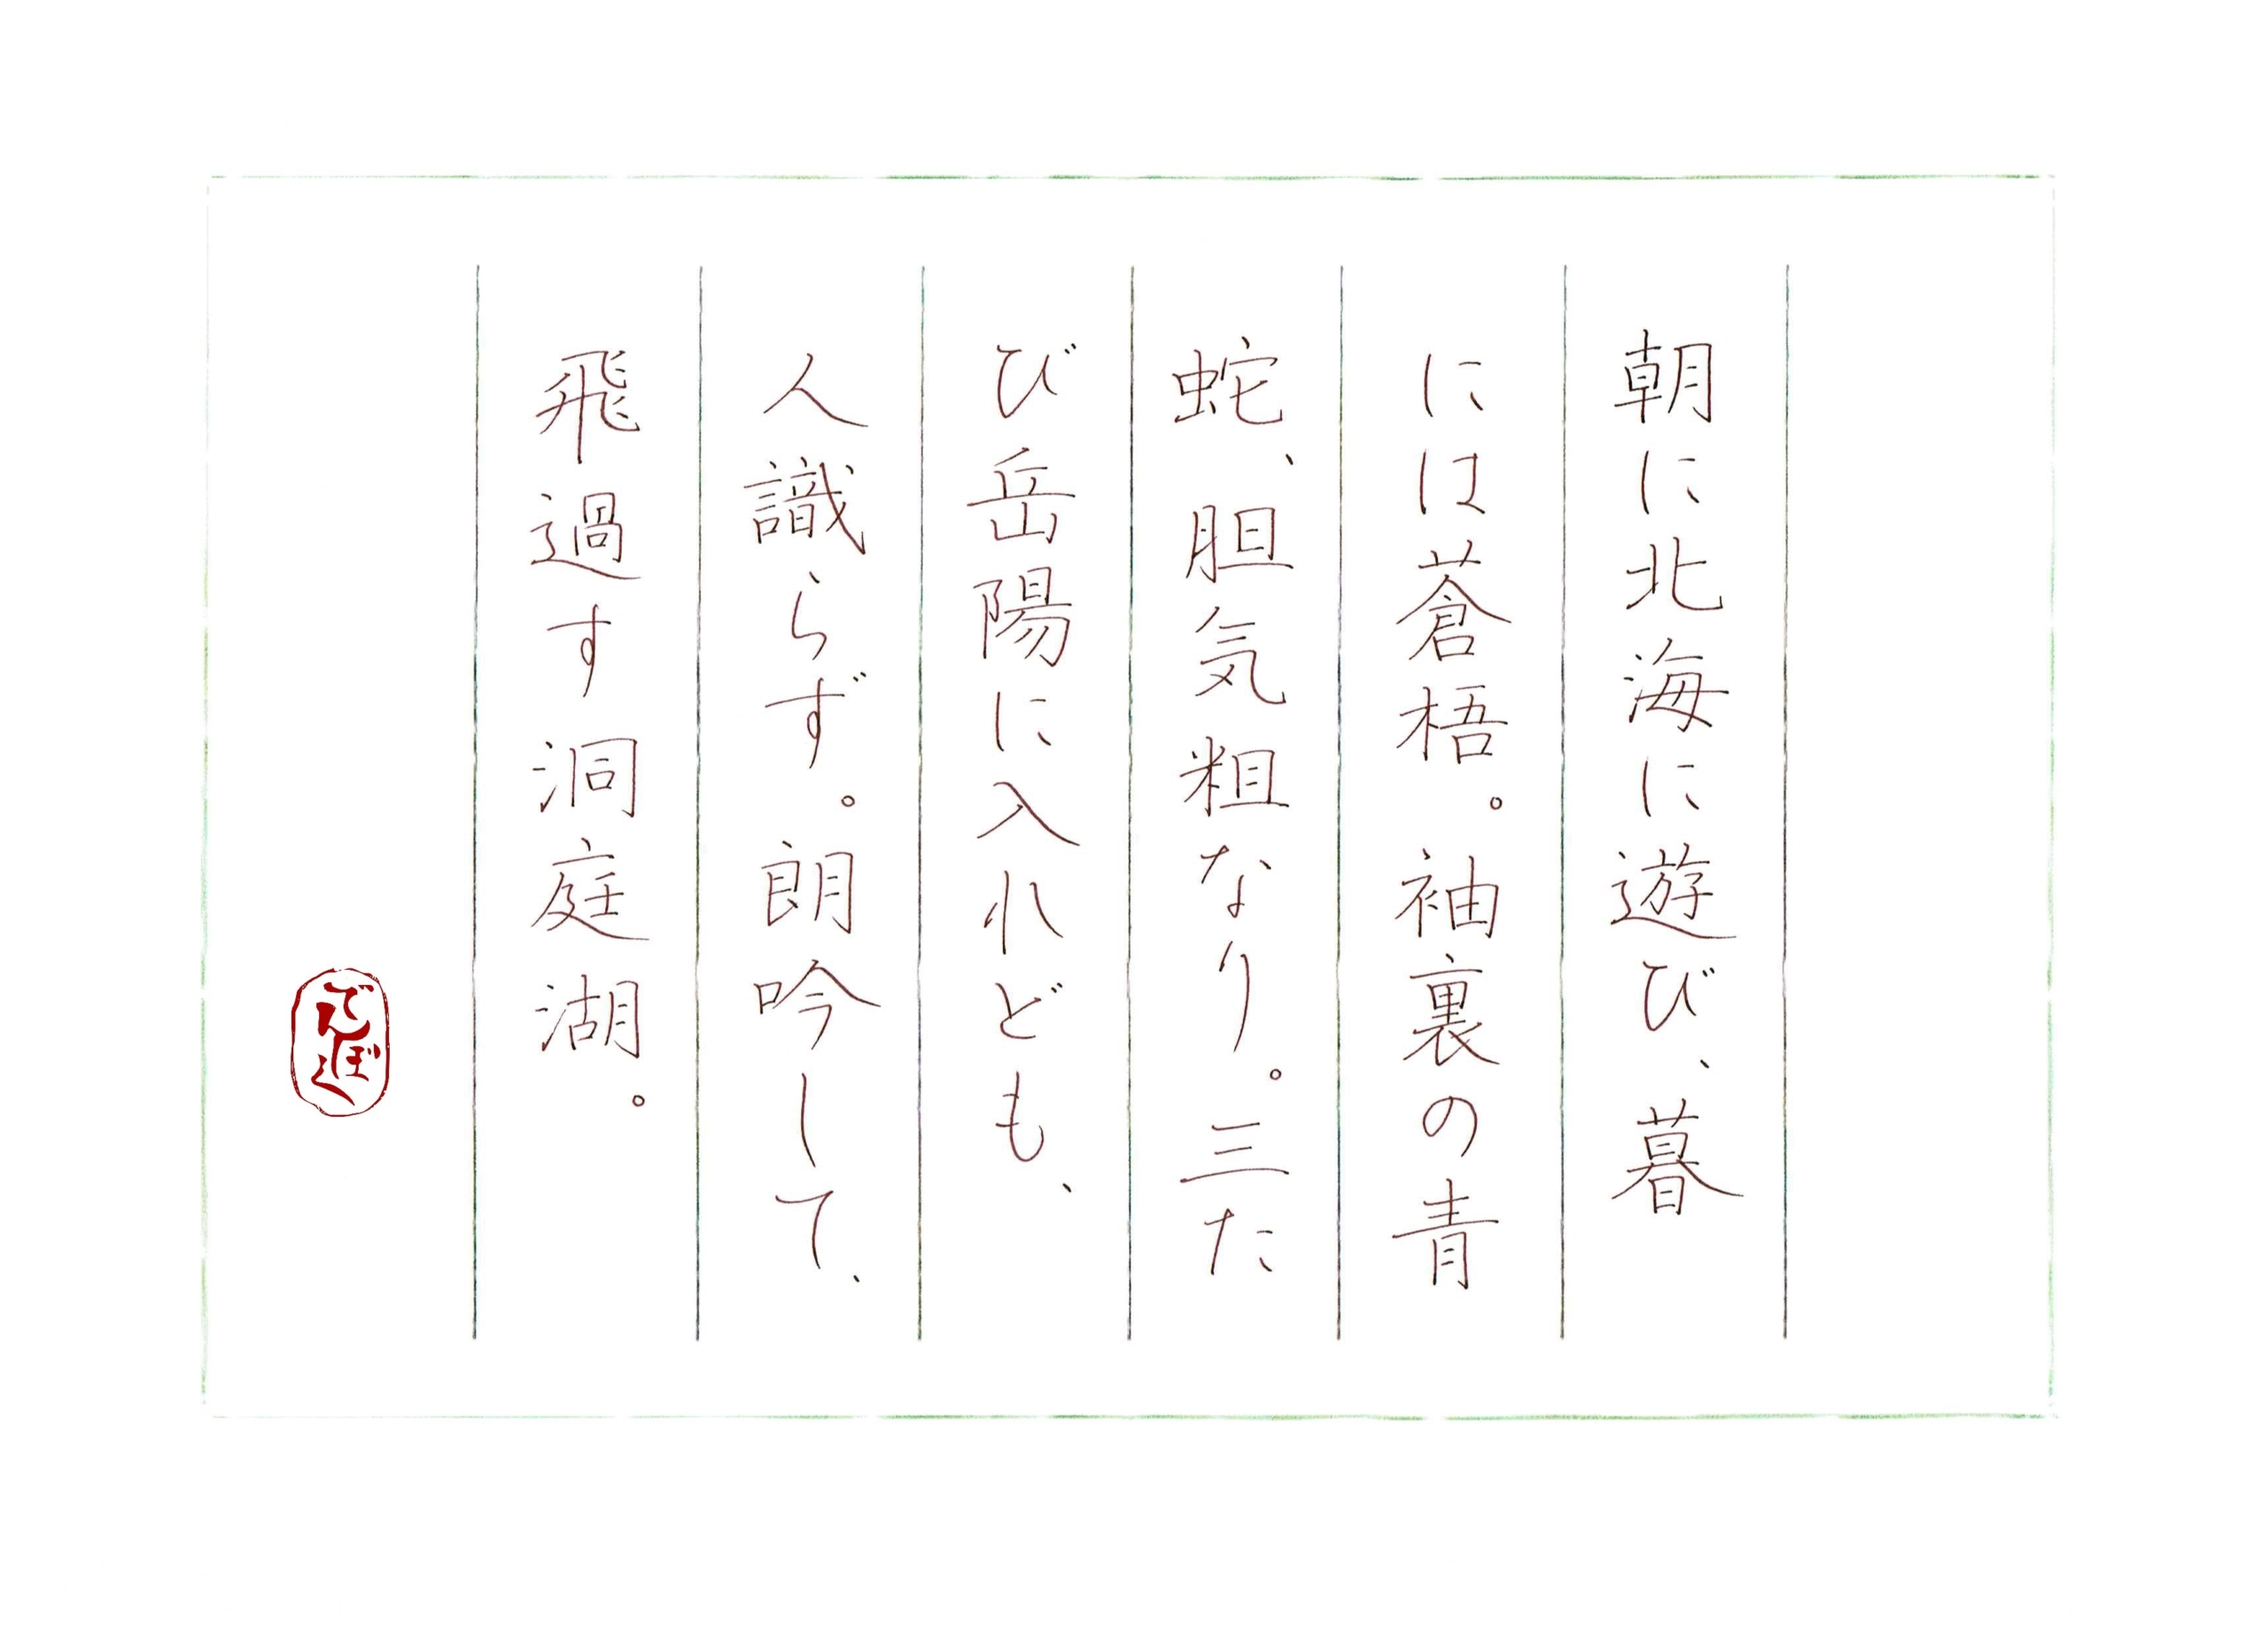 朝に北海に遊び、暮
には蒼梧。袖裏の青
蛇、胆気粗なり。三た
び岳陽に入れども、
人識らず。朗吟して、
飛過す洞庭湖。
でんぼく